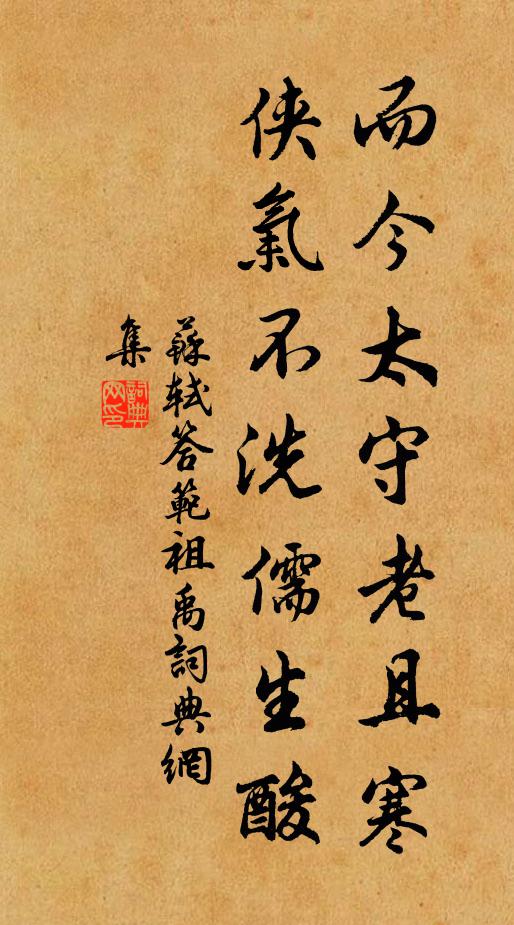 而今太守老且寒
俠氣不洗儒生酸
蘇軾答範祖禹詞典網
集
詞典網印